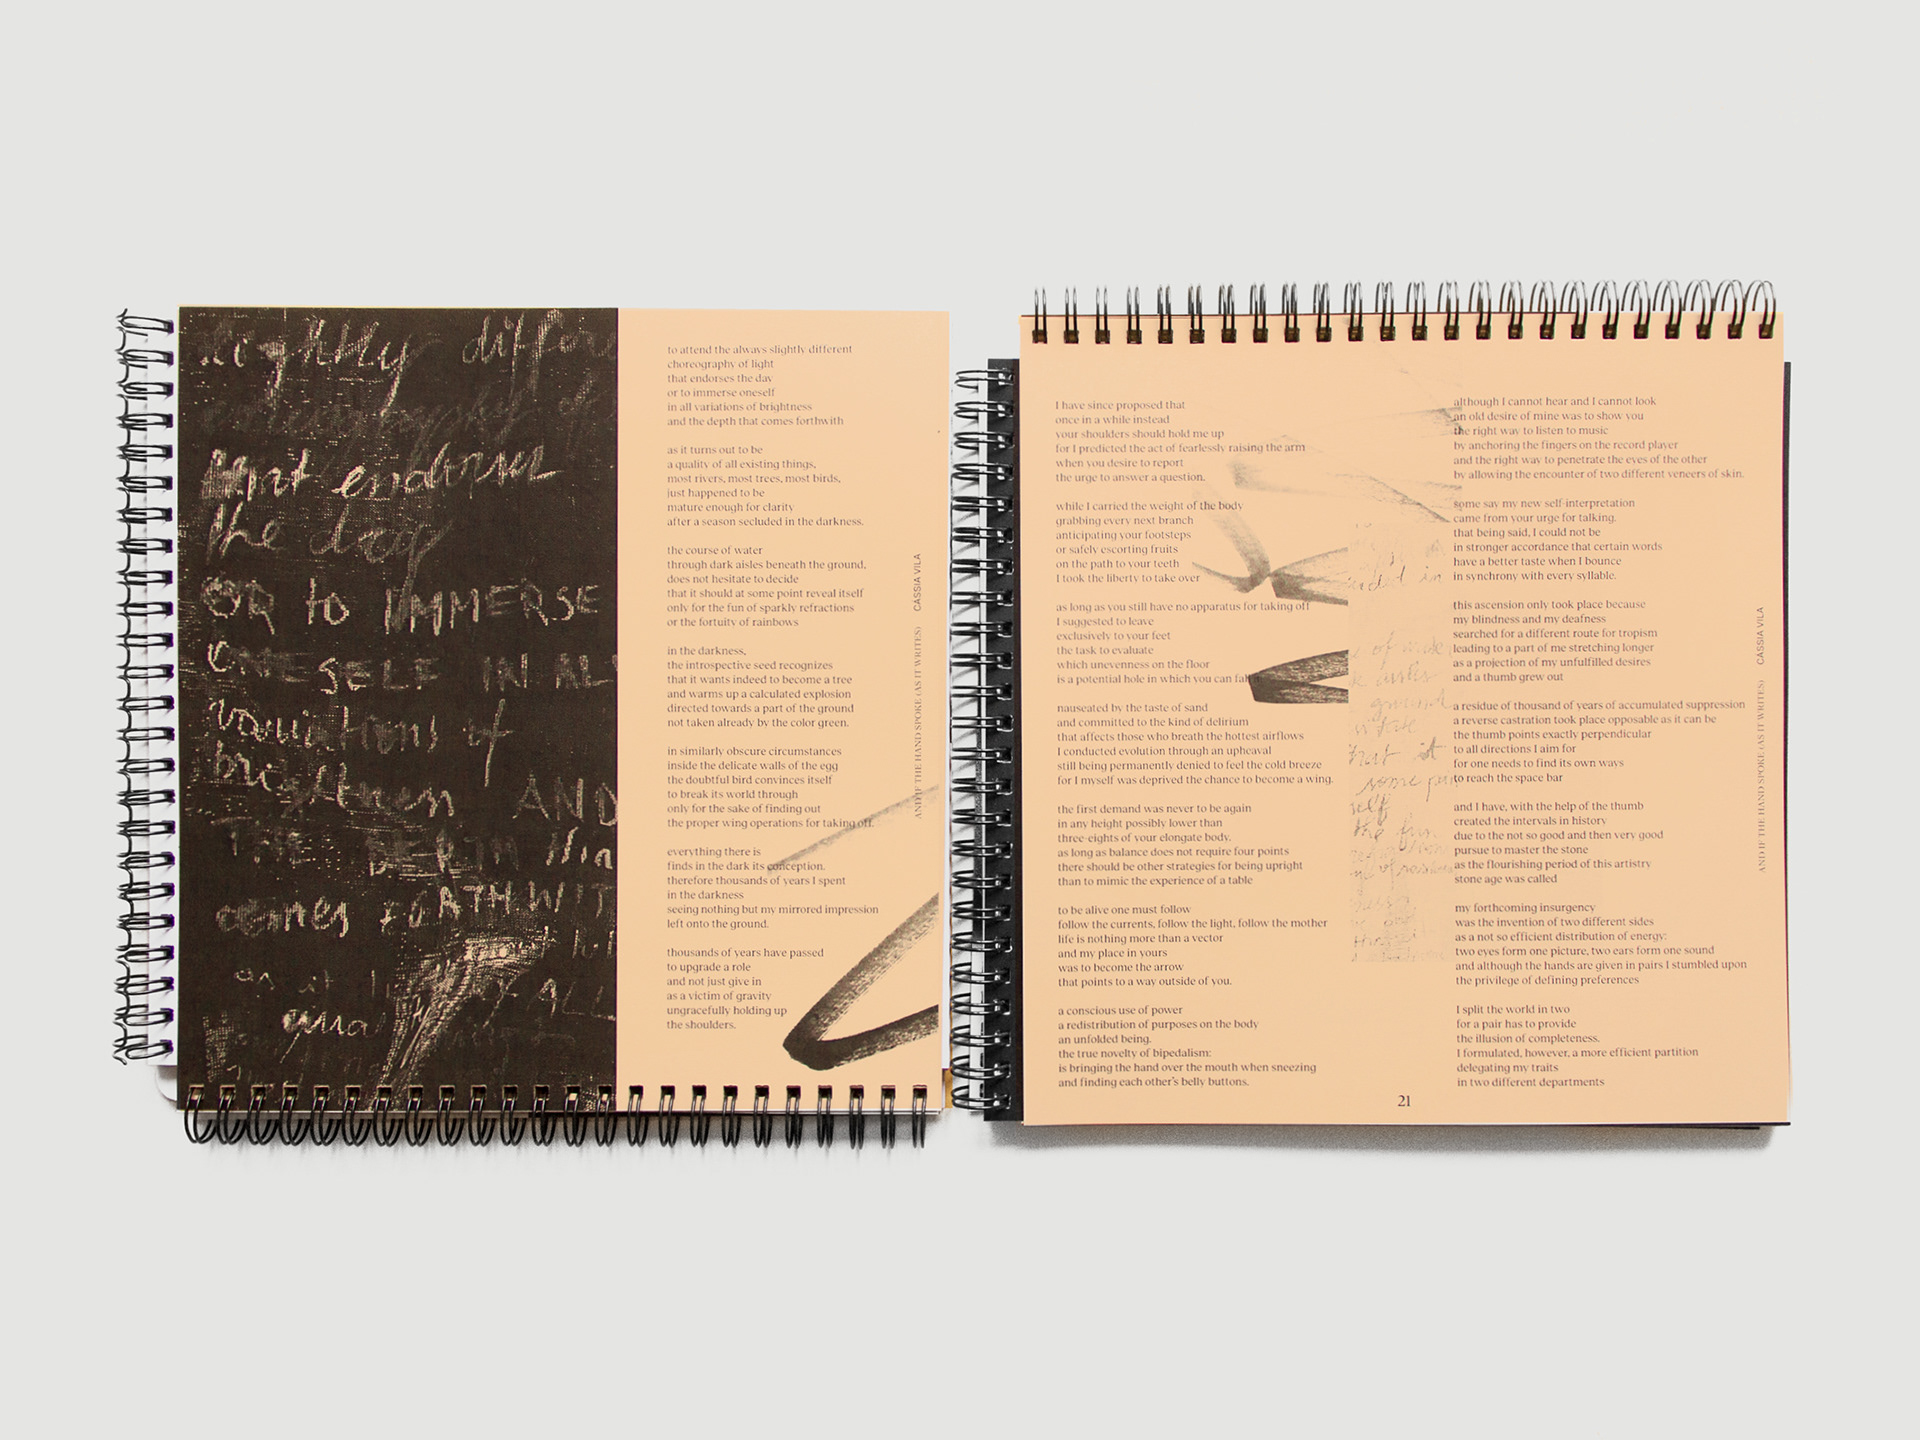 slightly differ
that endorses
the day
OR to IMMERSE
ONESELF IN AL
variations of
brightness AND
THE DEPTH
comes FORTHWIT
as it
ALL
to attend the always slightly different
choreography of light
that endorses the day
or to immerse oneself
in all variations of brightness
and the depth that comes forthwith
as it turns out to be
a quality of all existing things,
most rivers, most trees, most birds,
just happened to be
mature enough for clarity
after a season secluded in the darkness.
the course of water
through dark aisles beneath the ground,
does not hesitate to decide
that it should at some point reveal itself
only for the fun of sparkly refractions
or the fortuity of rainbows
in the darkness,
the introspective seed recognizes
that it wants indeed to become a tree
and warms up a calculated explosion
directed towards a part of the ground
not taken already by the color green.
in similarly obscure circumstances
inside the delicate walls of the egg
the doubtful bird convinces itself
to break its world through
only for the sake of finding out
the proper wing operations for taking off.
everything there is
finds in the dark its conception.
therefore thousands of years I spent
in the darkness
seeing nothing but my mirrored impression
left onto the ground.
thousands of years have passed
to upgrade a role
and not just give in
as a victim of gravity
ungracefully holding up
the shoulders.
AND IF THE HAND SPOKE (AS IT WRITES) CÁSSIA VILA
I have since proposed that
once in a while instead
your shoulders should hold me up
for I predicted the act of fearlessly raising the arm
when you desire to report
the urge to answer a question.
while I carried the weight of the body
grabbing every next branch
anticipating your footsteps
or safely escorting fruits
on the path to your teeth
I took the liberty to take over
as long as you still have no apparatus for taking off
I suggested to leave
exclusively to your feet
the task to evaluate
which unevenness on the floor
is a potential hole in which you can fall
nauseated by the taste of sand
and committed to the kind of delirium
that affects those who breath the hottest airflows
I conducted evolution through an upheaval
still being permanently denied to feel the cold breeze
for I myself was deprived the chance to become a wing.
the first demand was never to be again
in any height possibly lower than
three-eights of your elongate body.
as long as balance does not require four points
there should be other strategies for being upright
than to mimic the experience of a table
to be alive one must follow
follow the currents, follow the light, follow the mother
life is nothing more than a vector
and my place in yours
was to become the arrow
that points to a way outside of you.
a conscious use of power
a redistribution of purposes on the body
an unfolded being.
the true novelty of bipedalism:
is bringing the hand over the mouth when sneezing
and finding each other's belly buttons.
in
of
ground
that it
some
self
the fun
although I cannot hear and I cannot look
an old desire of mine was to show you
the right way to listen to music
by anchoring the fingers on the record player
and the right way to penetrate the eyes of the other
by allowing the encounter of two different veneers of skin.
some say my new self-interpretation
came from your urge for talking.
that being said, I could not be
in stronger accordance that certain words
have a better taste when I bounce
in synchrony with every syllable.
this ascension only took place because
my blindness and my deafness
searched for a different route for tropism
leading to a part of me stretching longer
as a projection of my unfulfilled desires
and a thumb grew out
a residue of thousand of years of accumulated suppression
a reverse castration took place opposable as it can be
the thumb points exactly perpendicular
to all directions I aim for
for one needs to find its own ways
to reach the space bar
and I have, with the help of the thumb
created the intervals in history
due to the not so good and then very good
pursue to master the stone
as the flourishing period of this artistry
stone age was called
my forthcoming insurgency
was the invention of two different sides
as a not so efficient distribution of energy:
two eyes form one picture, two ears form one sound
and although the hands are given in pairs I stumbled upon
the privilege of defining preferences
I split the world in two
for a pair has to provide
the illusion of completeness.
I formulated, however, a more efficient partition
delegating my traits
in two different departments
AND IF THE HAND SPOKE (AS IT WRITES) CÁSSIA VILA
21